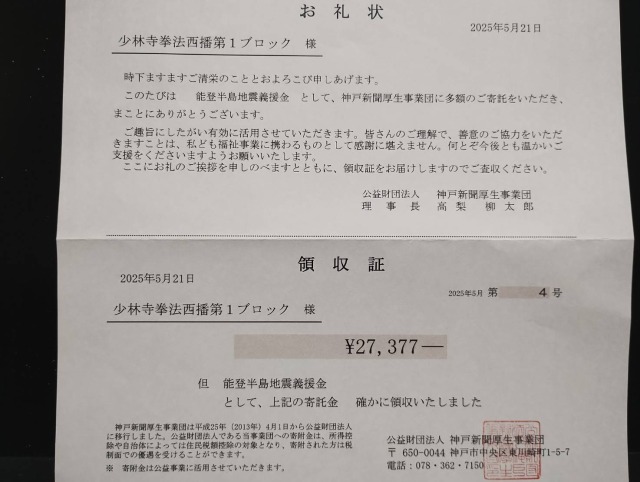 お礼状
2025年5月21日
少林寺拳法西播第1ブロック 様
時下ますますご清栄のこととおよろこび申しあげます。
このたびは 能登半島地震義援金 として、神戸新聞厚生事業団に多額のご寄託をいただき、
まことにありがとうございます。
ご趣旨にしたがい有効に活用させていただきます。皆さんのご理解で、善意のご協力をいただ
きますことは、私ども福祉事業に携わるものとして感謝に堪えません。何とぞ今後とも温かいご
支援をくださいますようお願いいたします。
ここにお礼のご挨拶を申しのべますとともに、領収証をお届けしますのでご査収ください。
公益財団法人 神戸新聞厚生事業団
理事長 高梨 柳太郎
領収証
2025年5月21日
2025年5月 第 4 号
少林寺拳法西播第1ブロック 様
¥27,377—
但 能登半島地震義援金
として、上記の寄託金 確かに領収いたしました
神戸新聞厚生事業団は平成25年(2013年)4月1日から公益財団法人
に移行しました。公益財団法人である当事業団への寄附金は、所得控
除や自治体によっては住民税額控除の対象となり、寄附された方は税
制面での優遇を受けることができます。
※ 寄附金は公益事業に活用させていただきます。
公益財団法人 神戸新聞厚生事業団
〒 650-0044 神戸市中央区東川崎町1-5-7
電話：078・362・7150